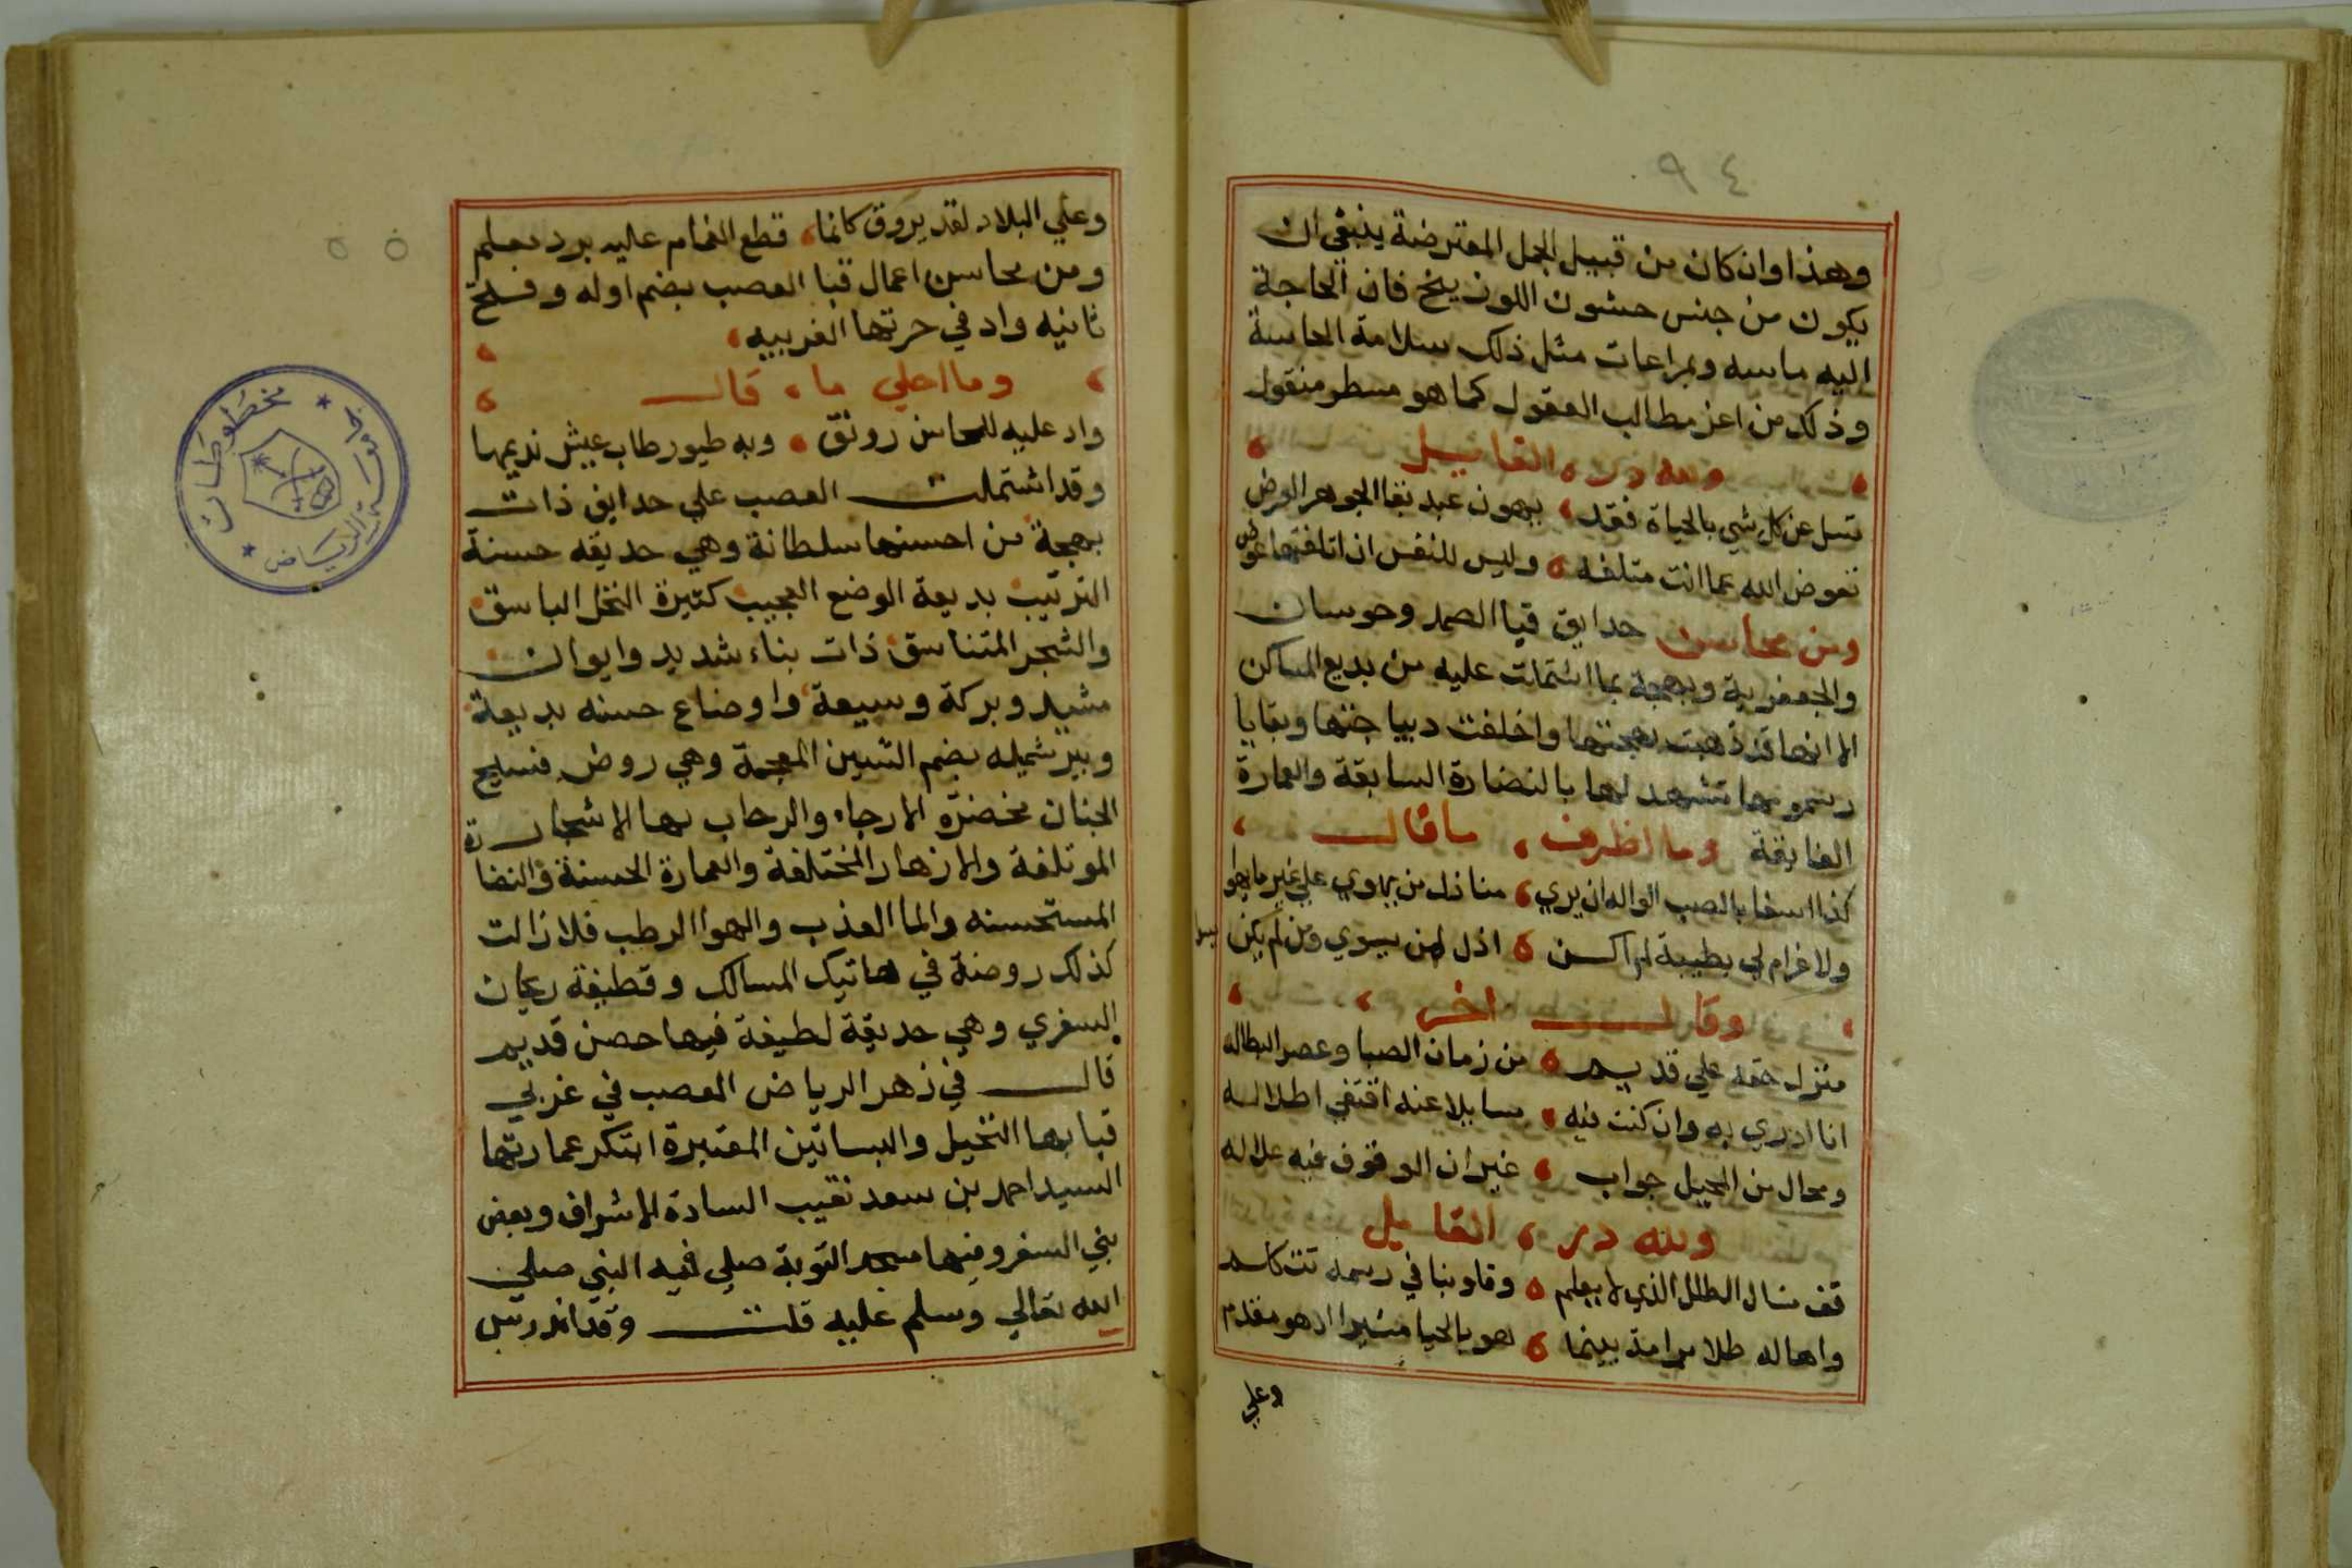 ٩٤
وهذا وان كان من قبيل الجمل المعترضة ينبغي ان
يكون من جنس حشون اللوزينخ فان الحاجة
اليه ماسه وبمراعات مثل ذلك سلامة الحاسة
وذلك من اعز مطالب العقول كما هو مسطر منقول
ولله در القايل
تسل عن كل شي بالحياة فقد يهون عبد بقا الجوهر العرض
تعوض الله عما انت متلفه وليس للنفس ان اتلفتها عوض
ومن محاسن حدايق قبا الصمد وحوسان
والجعفرية وبهجة بما اشتملت عليه من بديع المساكن
الا انها قد ذهبت بهجتها واخلفت ديباجتها وبقايا
رسومها تشهد لها بالنضارة السابقة والعمارة
الفايقة وما اظرف ما قال
كذا اسفا بالصب الواله ان يري منازل من يهوي علي غير ما يهوا
ولا غرام لي بطيبة لم اكن اذل لمن يسوي ومن لم يكن
وقال اخر
منزل حقه علي قديم من زمان الصبا وعصر البطاله
انا ادري به وان كنت فيه سايلا عنه اقتفي اطلاله
ومحال من المحيل جواب غير ان الوقوف فيه علاله
ولله در القايل
قف نسال الطلل الذي لا يعلم وقلوبنا في رسمه تتكلم
واهاله طلا مرامذ بينما هو بالحيا مثيرا اذ هو مقدم
وعلي
وعلي البلاد لقد يروق كانما قطع الغمام عليه برد معلم
ومن محاسن اعمال قبا العصب بضم اوله وفتح
ثانيه واد في حرتها الغربيه
وما احلي ما قال
واد عليه للمحاسن رونق وبه طيور طاب عيش نديمها
وقد اشتملت العصب علي حدايق ذات
بهجة من احسنها سلطانة وهي حديقه حسنة
الترتيب بديعة الوضع العجيب كثيرة النخل الباسق
والشجر المتناسق ذات بناء شديد وايوان
مشيد وبركة وسيعة واوضاع حسنه بديعة
وبير شميله بضم الشين المعجمة وهي روض فسيح
الجنان مخضرة الارجاء والرحاب بها الاشجار
الموتلفة والازهار المختلفة والعمارة الحسنة والنضارة
المستحسنه والما العذب والهوا الرطب فلا زالت
كذلك روضة في هاتيك المسالك وقطيفة ريحان
السفري وهي حديقة لطيفة فيها حصن قديم
قال في زهر الرياض العصب في غربي
قبا بها النخيل والبساتين المعتبرة ابتكر عمارتها
السيد احمد بن سعد نقيب السادة الاشراف وبعض
بني السفر وفيها مسجد التوبة صلي فيه النبي صلي
الله تعالي وسلم عليه قلت وقد اندرس
مخطوطات
الرياض